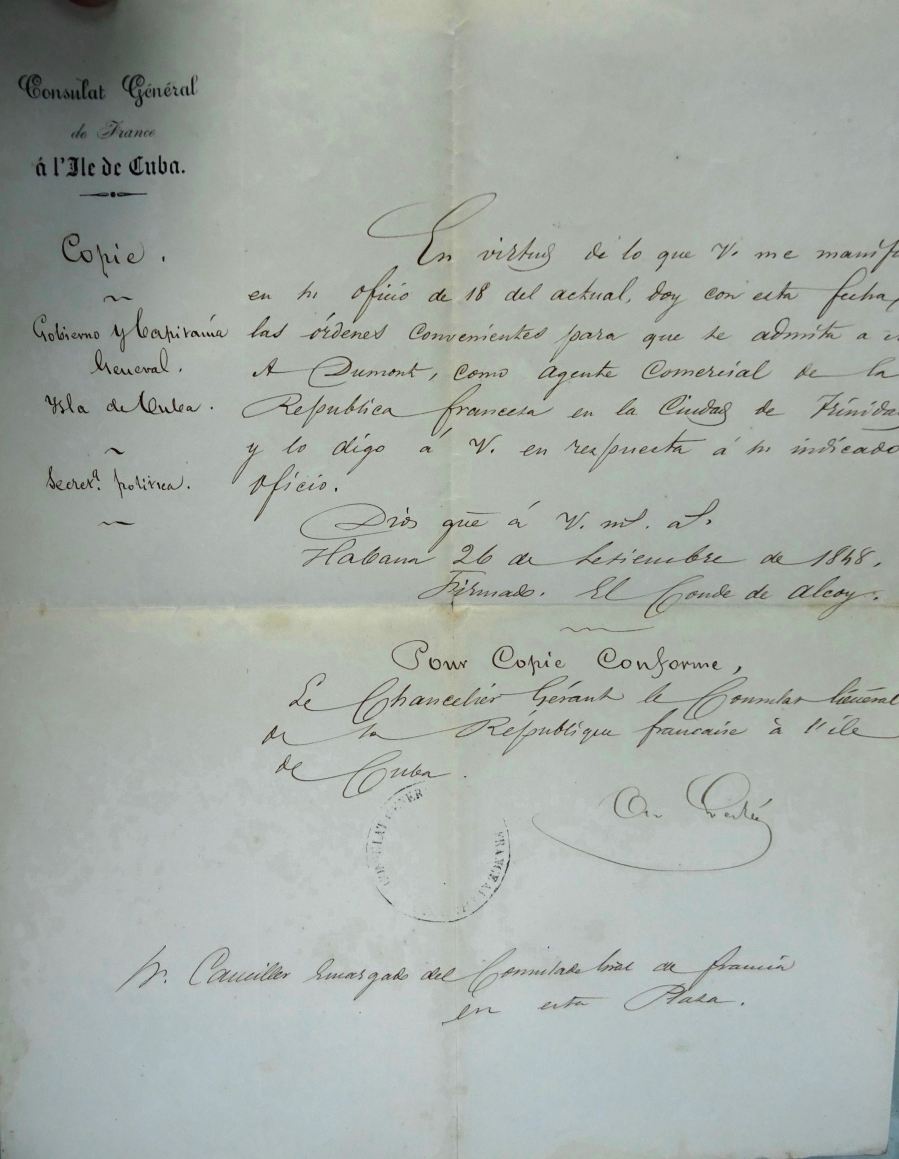 Consulat Général
de France
á l'Ile de Cuba.
Copie.
Gobierno y Capitanía
General.
Ysla de Cuba.
Secret.ª política.
En virtud de lo que V. me manif
en su oficio de 18 del actual, doy con esta fecha,
las órdenes convenientes para que se admita a
A Dumont, como agente Comercial de la
Republica francesa en la Ciudad de Trinida
y lo digo á V. en respuesta á su indicado
oficio.
Dios gue á V. ms. as.
Habana 26 de Setiembre de 1848.
Firmado. El Conde de Alcoy.
Pour Copie Conforme,
Le Chancelier Gérant le Consulat Général
de la République française à l'île
de Cuba.
CONSULAT GÉNÉR FRANÇAI
Sr. Canciller Encargado del Consulado Gral de Francia
en esta Plaza.